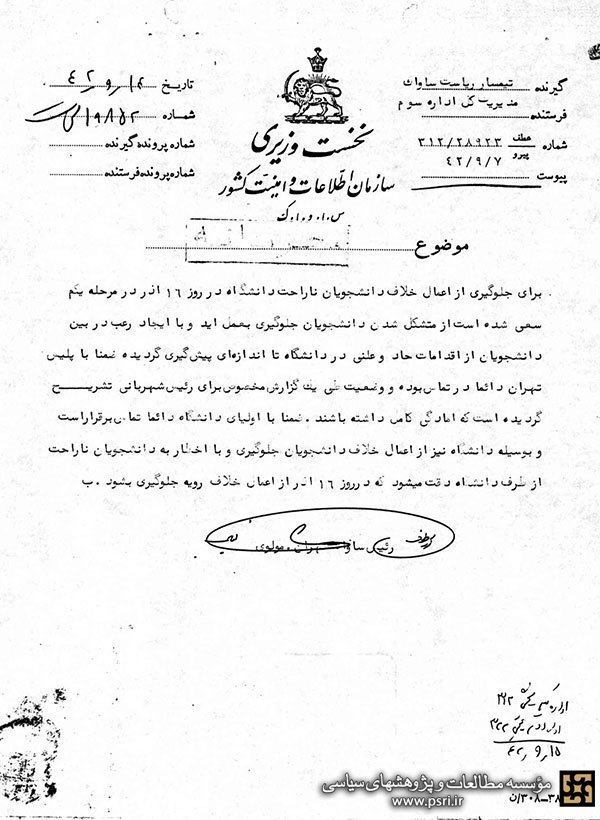 گیرنده تیمسار ریاست ساواک
مدیریت کل اداره سوم
فرستنده
شماره عطف ۳۱۲/۲۸۹۲۳
پیرو ۴۲/۹/۷
پیوست
نخست وزیری
سازمان اطلاعات و امنیت کشور
س.ا.و.ا.ک
تاریخ ۴۲/۹/۱۴
شماره ۱۹۸۵۲
شماره پرونده گیرنده
شماره پرونده فرستنده
موضوع
برای جلوگیری از اعمال خلاف دانشجویان ناراحت دانشگاه در روز ۱۶ آذر در مرحله یکم
سعی شده است از متشکل شدن دانشجویان جلوگیری بعمل اید و با ایجاد رعب در بین
دانشجویان از اقدامات حاد و علنی در دانشگاه تا اندازه‌ای پیش‌گیری گردیده ضمنا با پلیس
تهران دائما در تماس بوده و وضعیت طی یک گزارش مخصوص برای رئیس شهربانی تشریـــح
گردیده است که امادگی کامل داشته باشند . ضمنا با اولیای دانشگاه دائما تماس برقرار است
و بوسیله دانشگاه نیز از اعمال خلاف دانشجویان جلوگیری و با اخطار به دانشجویان ناراحت
از طرف دانشگاه دقت میشود که در روز ۱۶ اذر از اعمال خلاف رویه جلوگیری بشود . ب
رئیس ساواک تهران . مولوی
۴۲/۹/۱۵
مؤسسه مطالعات و پژوهشهای سیاسی
www.psri.ir